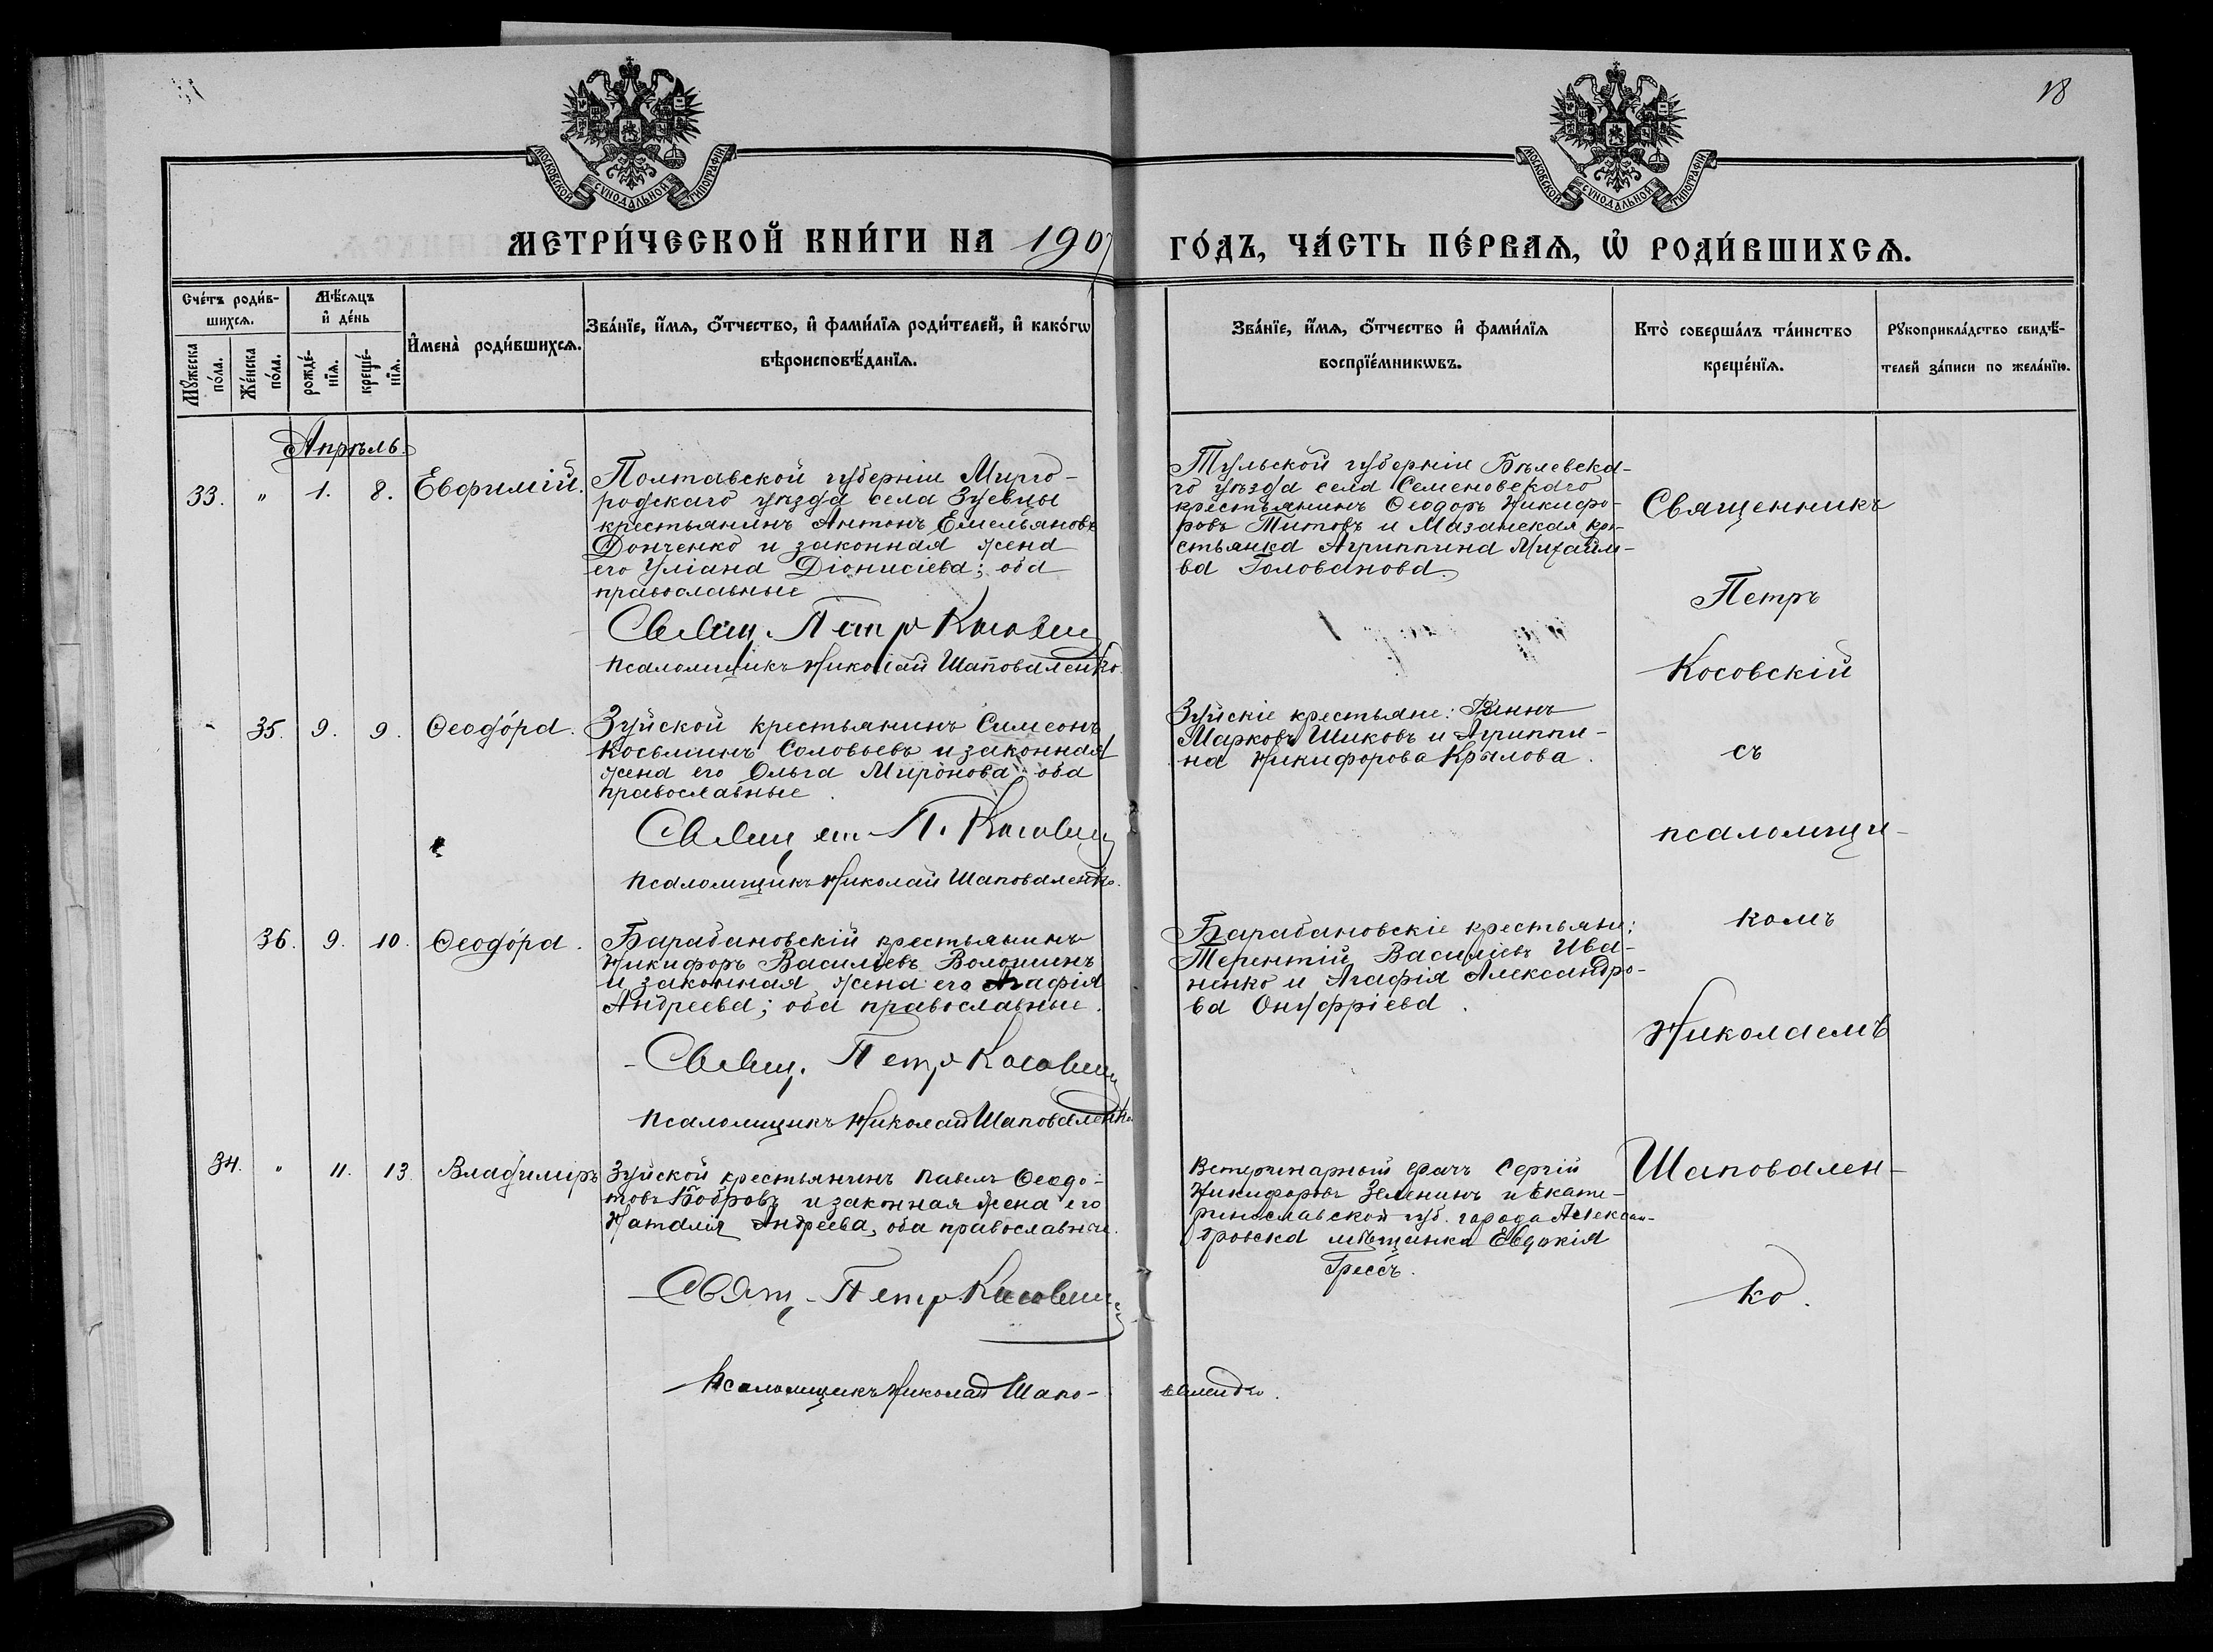 18
МОСКОВСКОЙ СѴНОДАЛЬНОЙ ТИПОГРАФІИ
МОСКОВСКОЙ СѴНОДАЛЬНОЙ ТИПОГРАФІИ
МЕТРИ́ЧЕСКОЙ КНИ́ГИ НА 1907 ГО́ДЪ, ЧА́СТЬ ПЕ́РВАѦ, Ѡ҆ РОДИ́ВШИХСѦ.
Сче́тъ роди́в-
шихсѧ.
Мꙋ́жеска по́ла.
Же́нска по́ла.
Мѣ́сѧцъ
и҆ де́нь
рожде́-
нїѧ.
креще́-
нїѧ.
И҆мена̀ роди́вшихсѧ.
Зва́нїе, и҆́мѧ, ѻ҆́тчество, и҆ фами́лїѧ роди́телей, и҆ како́гѡ
вѣроисповѣ́данїѧ.
Зва́нїе, и҆́мѧ, ѻ҆́тчество и҆ фами́лїѧ
воспрїе́мникѡвъ.
Кто̀ соверша́лъ та́инство
креще́нїѧ.
Рꙋкоприкла́дство свидѣ́-
телей за́писи по жела́нїю.
Апрѣль.
33. „ 1. 8. Евфимій.
Полтавской губерніи Мирго-
родскаго уѣзда села Зуевцы
крестьянинъ Антонъ Емельяновъ
Донченко и законная жена
его Уліана Діонисіева; оба
православные
Свящ. Петръ Косовскій
Псаломщикъ Николай Шаповаленко.
Тульской губерніи Бѣлевска-
го уѣзда села Семеновскаго
крестьянинъ Ѳеодоръ Никифо-
ровъ Титовъ и Мазанская кре-
стьянка Агриппина Михайло-
ва Голованова.
35. 9. 9. Ѳеодо́ра.
Зуйской крестьянинъ Симеонъ
Косьминъ Соловьевъ и законная
жена его Ольга Миронова оба
православные.
Священ. П. Косовскій
Псаломщикъ Николай Шаповаленко.
Зуйскіе крестьяне:
Марковъ Шиковъ и Агриппи-
на Никифорова Крылова.
36. 9. 10. Ѳеодо́ра.
Барабановскій крестьянинъ
Никифоръ Василіевъ Волошинъ
и законная жена его Агафія
Андреева; оба православные.
Свящ. Петръ Косовскій
Псаломщикъ Николай Шаповаленко
Барабановскіе крестьяне:
Терентій Василіевъ Ива-
ненко и Агафія Александро-
ва Онуфріева.
34. „ 11. 13. Владиміръ
Зуйской крестьянинъ Павелъ Ѳеодо-
товъ Бобровъ и законная жена его
Наталія Андреева, оба православные.
Свящ. Петръ Косовскій
Псаломщикъ Николай Шапо-
валенко.
Ветеринарный врачъ Сергій
Никифоровъ Зеленинъ и Екате-
ринославской губ. города Алексан-
дровска мѣщанка Евдокія
Грессъ.
Священникъ
Петръ
Косовскій
съ
псаломщи-
комъ
Николаемъ
Шаповален-
ко.